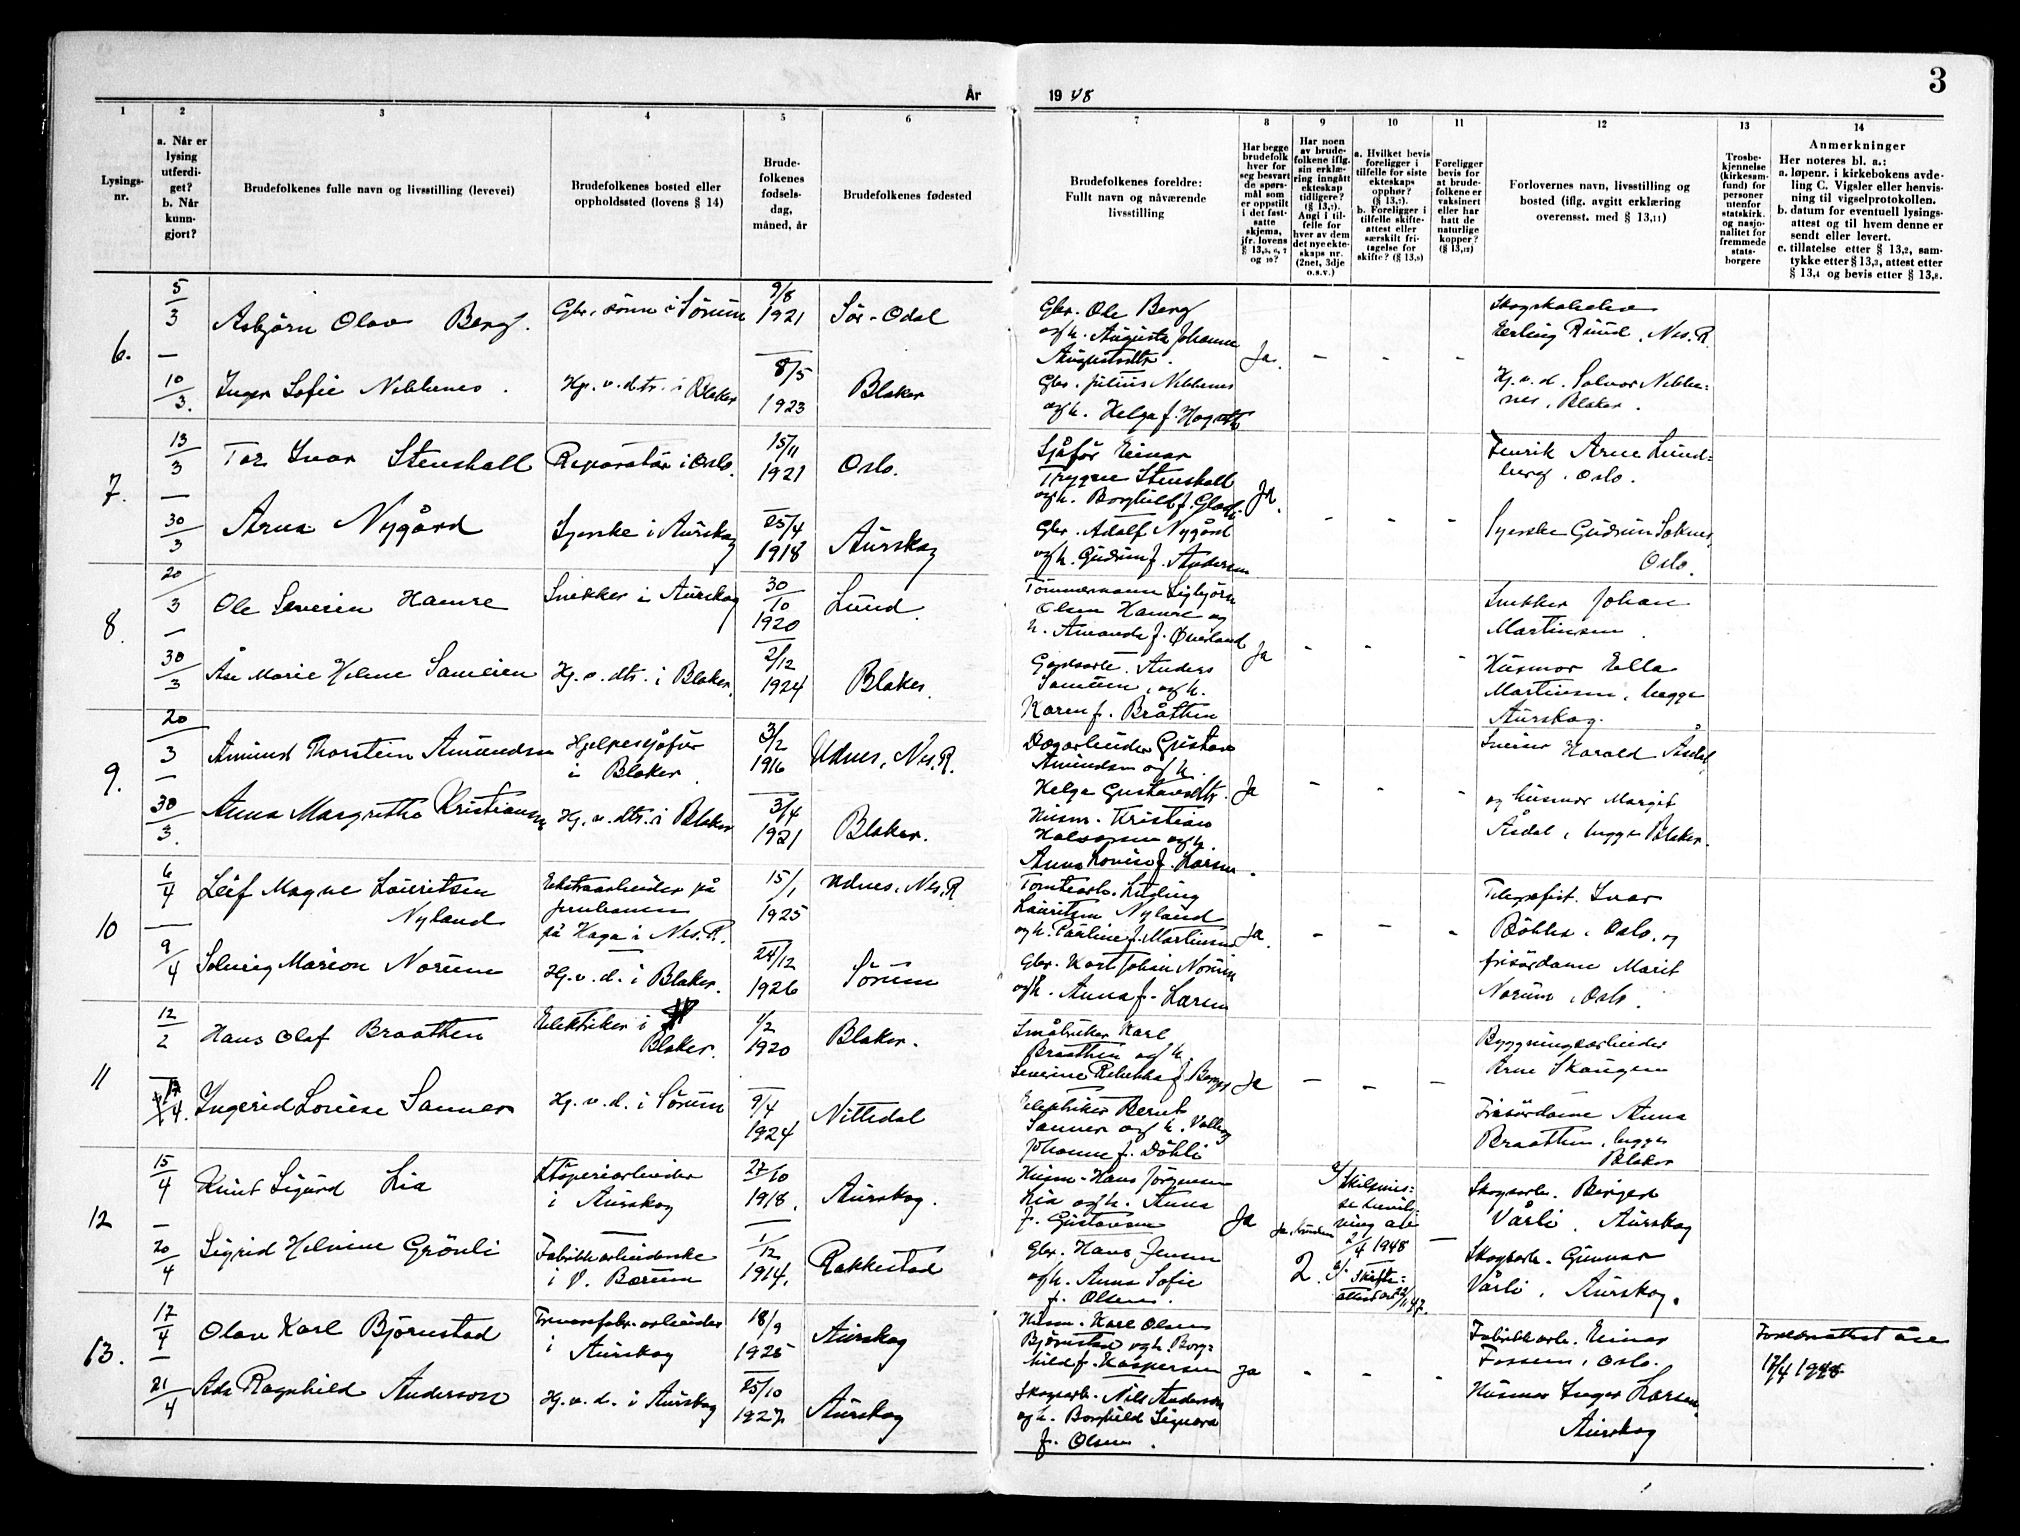 År 1948
3
1
2
3
4
5
6
7
8
9
10
11
12
13
14
Lysings-
nr.
a. Når er
lysing
utferdi-
get?
b. Når
kunn-
gjort?
Brudefolkenes fulle navn og livsstilling (levevei)
Brudefolkenes bosted eller
oppholdssted (lovens § 14)
Brude-
folkenes
fødsels-
dag,
måned, år
Brudefolkenes fødested
Brudefolkenes foreldre:
Fullt navn og nåværende
livsstilling
Har begge
brudefolk
hver for
seg besvart
de spørs-
mål som
er oppstilt
i det fast-
satte
skjema,
jfr. lovens
§ 13,5, 6, 7
og 10?
Har noen
av brude-
folkene iflg.
sin erklæ-
ring inngått
ekteskap
tidligere?
(§ 13,7).
Angi i til-
felle for
hver av dem
det nye ekte-
skaps nr.
(2net, 3dje
o.s.v.)
a. Hvilket bevis
foreligger i
tilfelle for siste
ekteskaps
opphør?
(§ 13,7).
b. Foreligger i
tilfelle skifte-
attest eller
særskilt fri-
tagelse for
skifte? (§ 13,9)
Foreligger
bevis for
at brude-
folkene er
vaksinert
eller har
hatt de
naturlige
kopper?
(§ 13,12)
Forlovernes navn, livsstilling og
bosted (iflg. avgitt erklæring
overensst. med § 13,11)
Trosbe-
kjennelse
(kirkesam-
fund) for
personer
utenfor
statskirk.
og nasjo-
nalitet for
fremmede
stats-
borgere
Anmerkninger
Her noteres bl. a.:
a. løpenr. i kirkebokens avde-
ling C. Vigsler eller henvis-
ning til vigselprotokollen.
b. datum for eventuell lysings-
attest og til hvem denne er
sendt eller levert.
c. tillatelse etter § 13,2, sam-
tykke etter § 13,3, attest etter
§ 13,4 og bevis etter § 13,8.
6.
5/3
Asbjørn Olav Berg.
Gbr. sønn i Sørum
9/8
1921
Sør-Odal
Gbr. Ole Berg
og h. Augusta Johanne
Augustsdtr.
Ja. - - -
Erling Ruud, Nes. R.
10/3.
Inger Sofie Nebbenes.
Hj. v. dtr. i Blaker
8/5
1923
Blaker
Gbr. Julius Nebbenes
og h. Helga f.
Hj. v. d. Solvor Nebbe-
nes, Blaker.
7.
13/3
Tor Ivar Stenshall
Reparatør i Oslo.
15/11
1921
Oslo.
Sjåfør Einar
Trygve Stenshall
og h. Borghild f.
Ja. - - -
Arne Lund-
berg, Oslo.
30/3
Arna Nygård
Syerske i Aurskog
25/4
1918
Aurskog
Gbr. Adolf Nygård
og h. Gudrun f. Andersen
Syerske Gudrun
Oslo.
8.
20/3
Ole Severin Hamre
Snekker i Aurskog
30/10
1920
Lund.
Tømmermann Sigbjørn
Olsen Hamre og
h. Amanda f. Øverland
Ja - - -
Snekker Johan
Martinsen.
30/3
Åse Marie Helene Sameien
Hj. v. dtr. i Blaker.
2/12
1924
Blaker.
Gårdsarb. Anders
Sameien, og h.
Karen f. Bråthen
Husmor Ella
Martinsen, begge
Aurskog.
9.
20/3
Amund Thorstein Amundsen
Hjelpesjåfør
i Blaker.
3/2
1916
Udnes, Nes. R.
Dagarbeider Gustav
Amundsen og h.
Helga Gustavsdtr.
Ja - - -
Harald Åsdal,
30/3.
Anna Margrethe Kristiansen
Hj. v. dtr. i Blaker
3/4
1921
Blaker.
Husm. Kristian
Halvorsen og h.
Anna Lovise f. Larsen.
og husmor Margit
Åsdal, begge Blaker.
10
6/4
Leif Magne Lauritsen
Nyland
Ekstraarbeider på
Jernbanen
på Haga i Nes. R.
15/1
1925
Udnes, Nes. R
Tomtearb. Erling
Lauritsen Nyland
og h. Pauline f. Martinsen
Ja. - - -
Telegrafist. Ivar
Bøhler, Oslo, og
9/4
Solveig Marion Norum
Hj. v. d. i Blaker.
24/12
1926
Sørum
Gbr. Karl Johan Norum
og h. Anna f. Larsen
frisørdame Marit
Norum, Oslo.
11
12/2
Hans Olaf Braathen
Elektriker i
Blaker.
1/2
1920
Blaker.
Småbruker Karl
Braathen og h.
Severine Rebekka f. Berger
Ja - - -
Byggningsarbeider
Arne Skaugen
17/4.
Ingerid Lovise Sanner
Hj. v. d. i Sørum
9/4
1924
Nittedal
Elektriker Bernt
Sanner og h. Valborg
Johanne f. Døhli
Frisørdame Anna
Braathen, begge
Blaker
12
15/4
Knut Sigurd Lia
Støperiarbeider
i Aurskog
27/10
1918.
Aurskog.
Husm. Hans Jørgensen
Lia og h. Anna
f. Gustavsen
Ja
Ja, bruden
2.
a/ Skilsmis-
se bevilg-
ning av
2/4 1948
b/ Skifte-
attest av 22/11 47.
-
Skogsarb. Birger
Vårli, Aurskog
20/4
Sigrid Helvine Grönli
Fabrikkarbeiderske
i V. Bærum
1/12
1914.
Rakkestad
Gbr. Hans Jensen
og h. Anna Sofie
f. Olsen.
Skogsarb. Gunnar
Vårli, Aurskog.
13.
17/4
Olav Karl Bjørnstad
Trevarefabr.arbeider
i Aurskog
18/9
1925
Aurskog
Husm. Karl Olsen
Bjørnstad og h. Borg-
hild f. Kaspersen
Ja - - -
Fabrikkarb. Einar
Fossum, Oslo.
17/4 1948
21/4
Ada Ragnhild Anderson
Hj. v. d. i Aurskog
25/10
1927.
Aurskog
Skogsarb. Nils Anderson
og h. Borghild Signora
f. Olsen.
Husmor Inger Larsen,
Aurskog